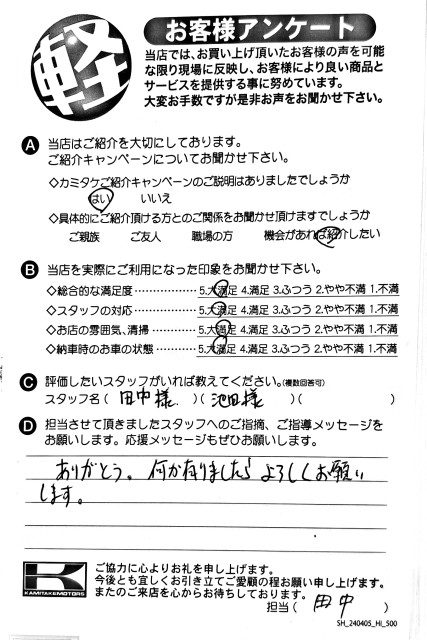 軽
お客様アンケート
当店では、お買い上げ頂いたお客様の声を可能
な限り現場に反映し、お客様により良い商品と
サービスを提供する事に努めています。
大変お手数ですが是非お声をお聞かせ下さい。
A 当店はご紹介を大切にしております。
ご紹介キャンペーンについてお聞かせ下さい。
◇カミタケご紹介キャンペーンのご説明はありましたでしょうか
はい いいえ
◇具体的にご紹介頂ける方とのご関係をお聞かせ頂けますでしょうか
ご親族 ご友人 職場の方 機会があれば紹介したい
B 当店を実際にご利用になった印象をお聞かせ下さい。
◇総合的な満足度 5.大満足 4.満足 3.ふつう 2.やや不満 1.不満
◇スタッフの対応 5.大満足 4.満足 3.ふつう 2.やや不満 1.不満
◇お店の雰囲気、清掃 5.大満足 4.満足 3.ふつう 2.やや不満 1.不満
◇納車時のお車の状態 5.大満足 4.満足 3.ふつう 2.やや不満 1.不満
C 評価したいスタッフがいれば教えてください。(複数回答可)
スタッフ名( 田中様 )( 池田様 )( )
D 担当させて頂きましたスタッフへのご指摘、ご指導メッセージを
お願いします。応援メッセージもぜひお願いします。
ありがとう。何か有りましたらよろしくお願い
します。
K
KAMITAKE MOTORS
ご協力に心よりお礼を申し上げます。
今後とも宜しくお引き立てご愛顧の程お願い申し上げます。
またのご来店を心からお待ちしております。
担当( 田中 )
SH_240405_HI_500